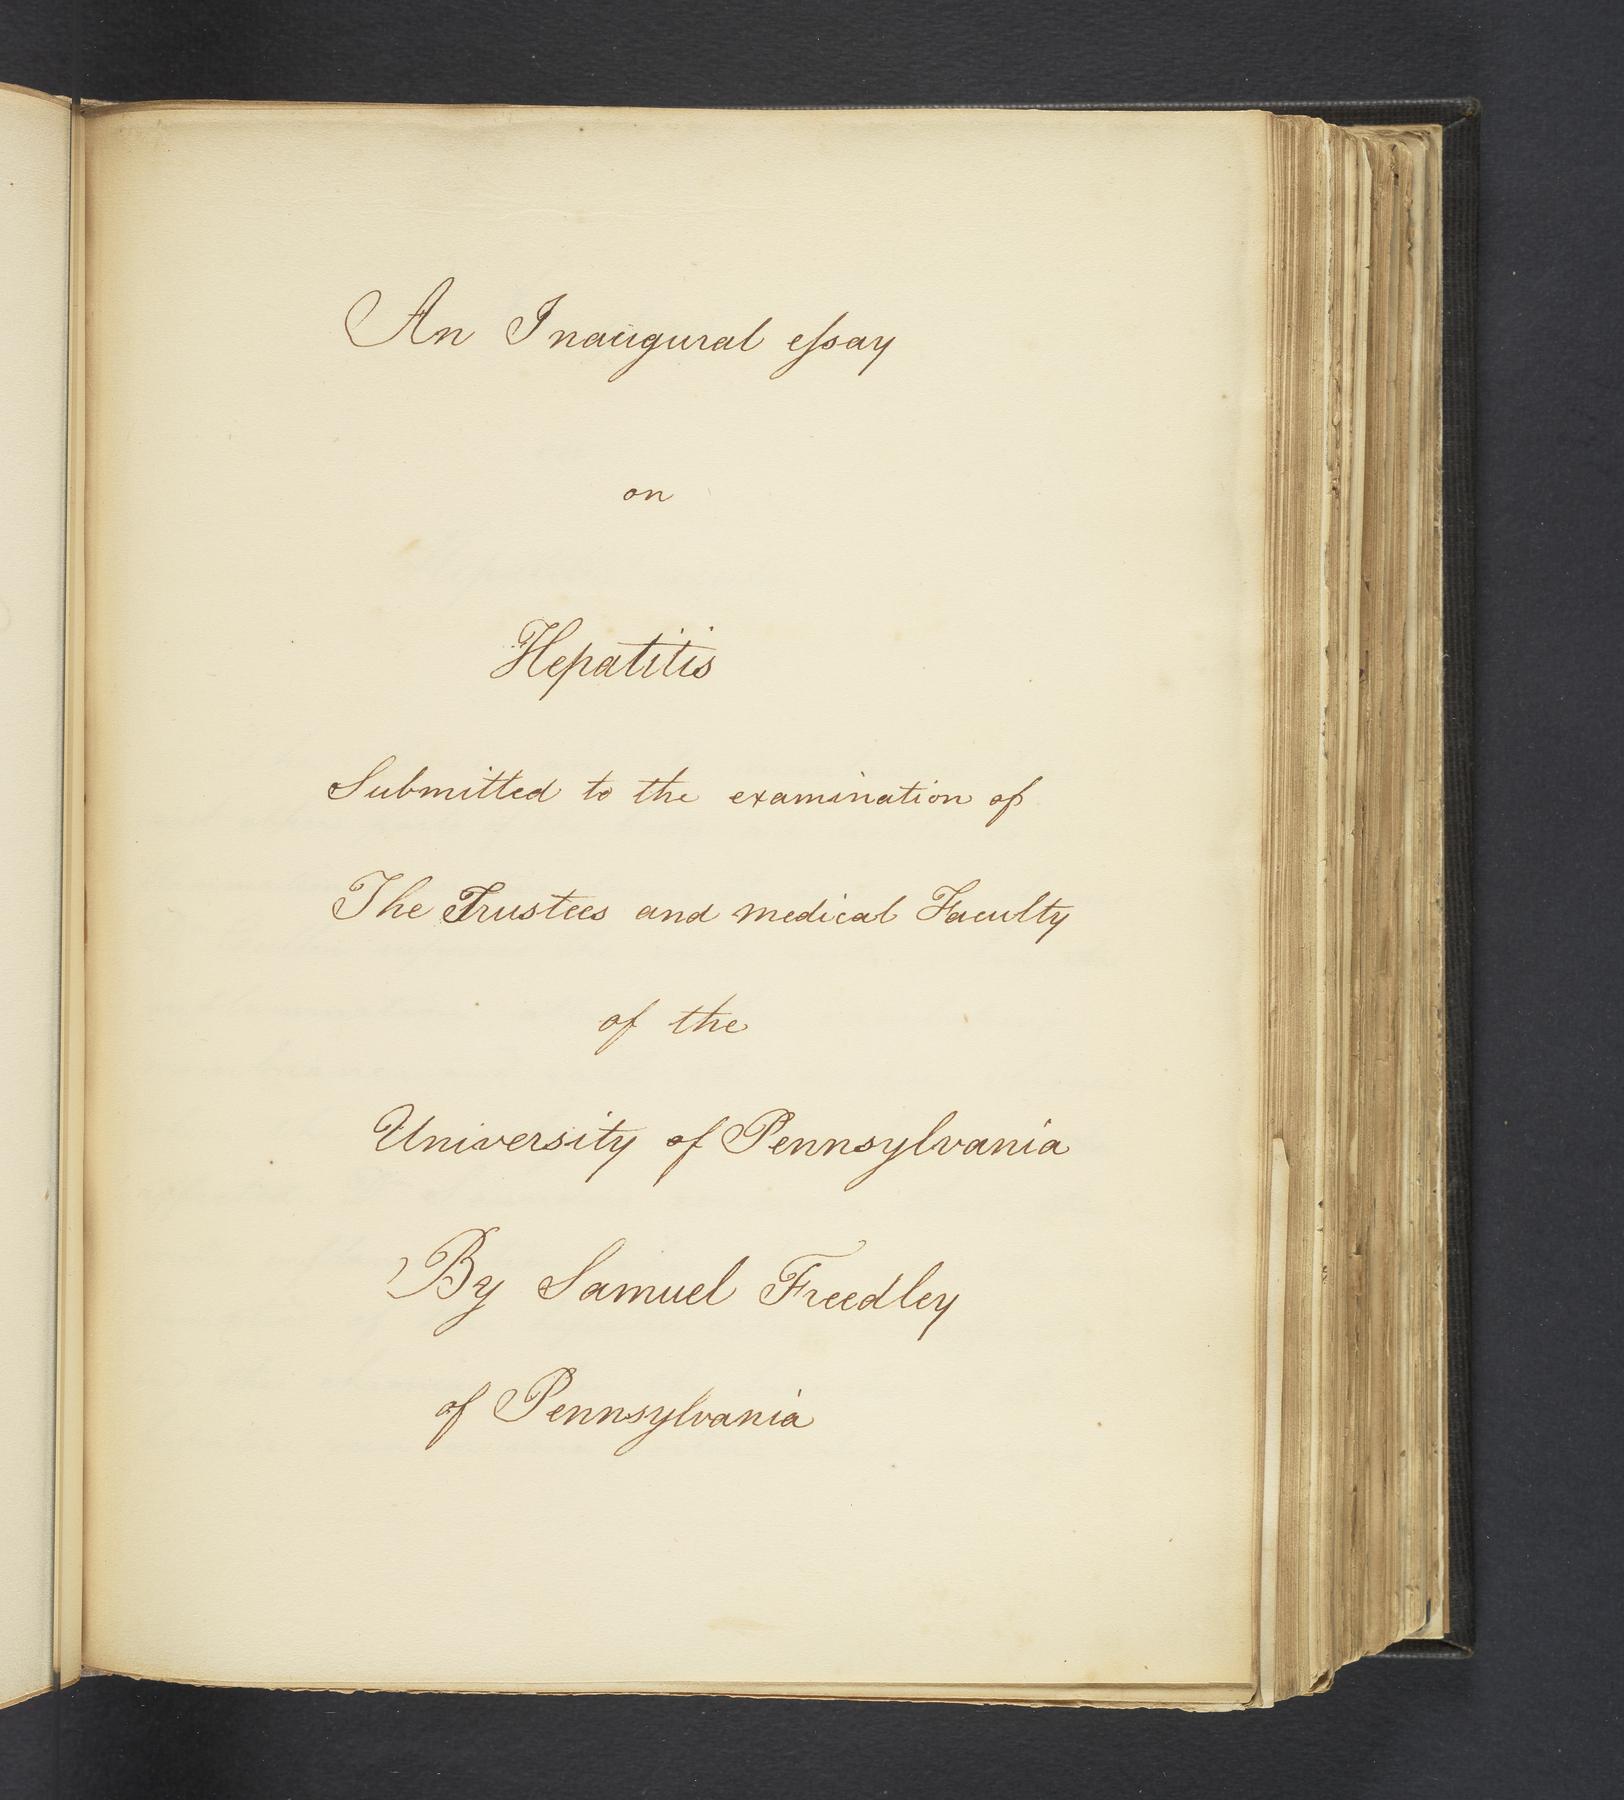 An Inaugural eſsay
on
Hepatitis
Submitted to the examination of
The Trustees and medical Faculty
of the
University of Pennsylvania
By Samuel Freedley
of Pennsylvania